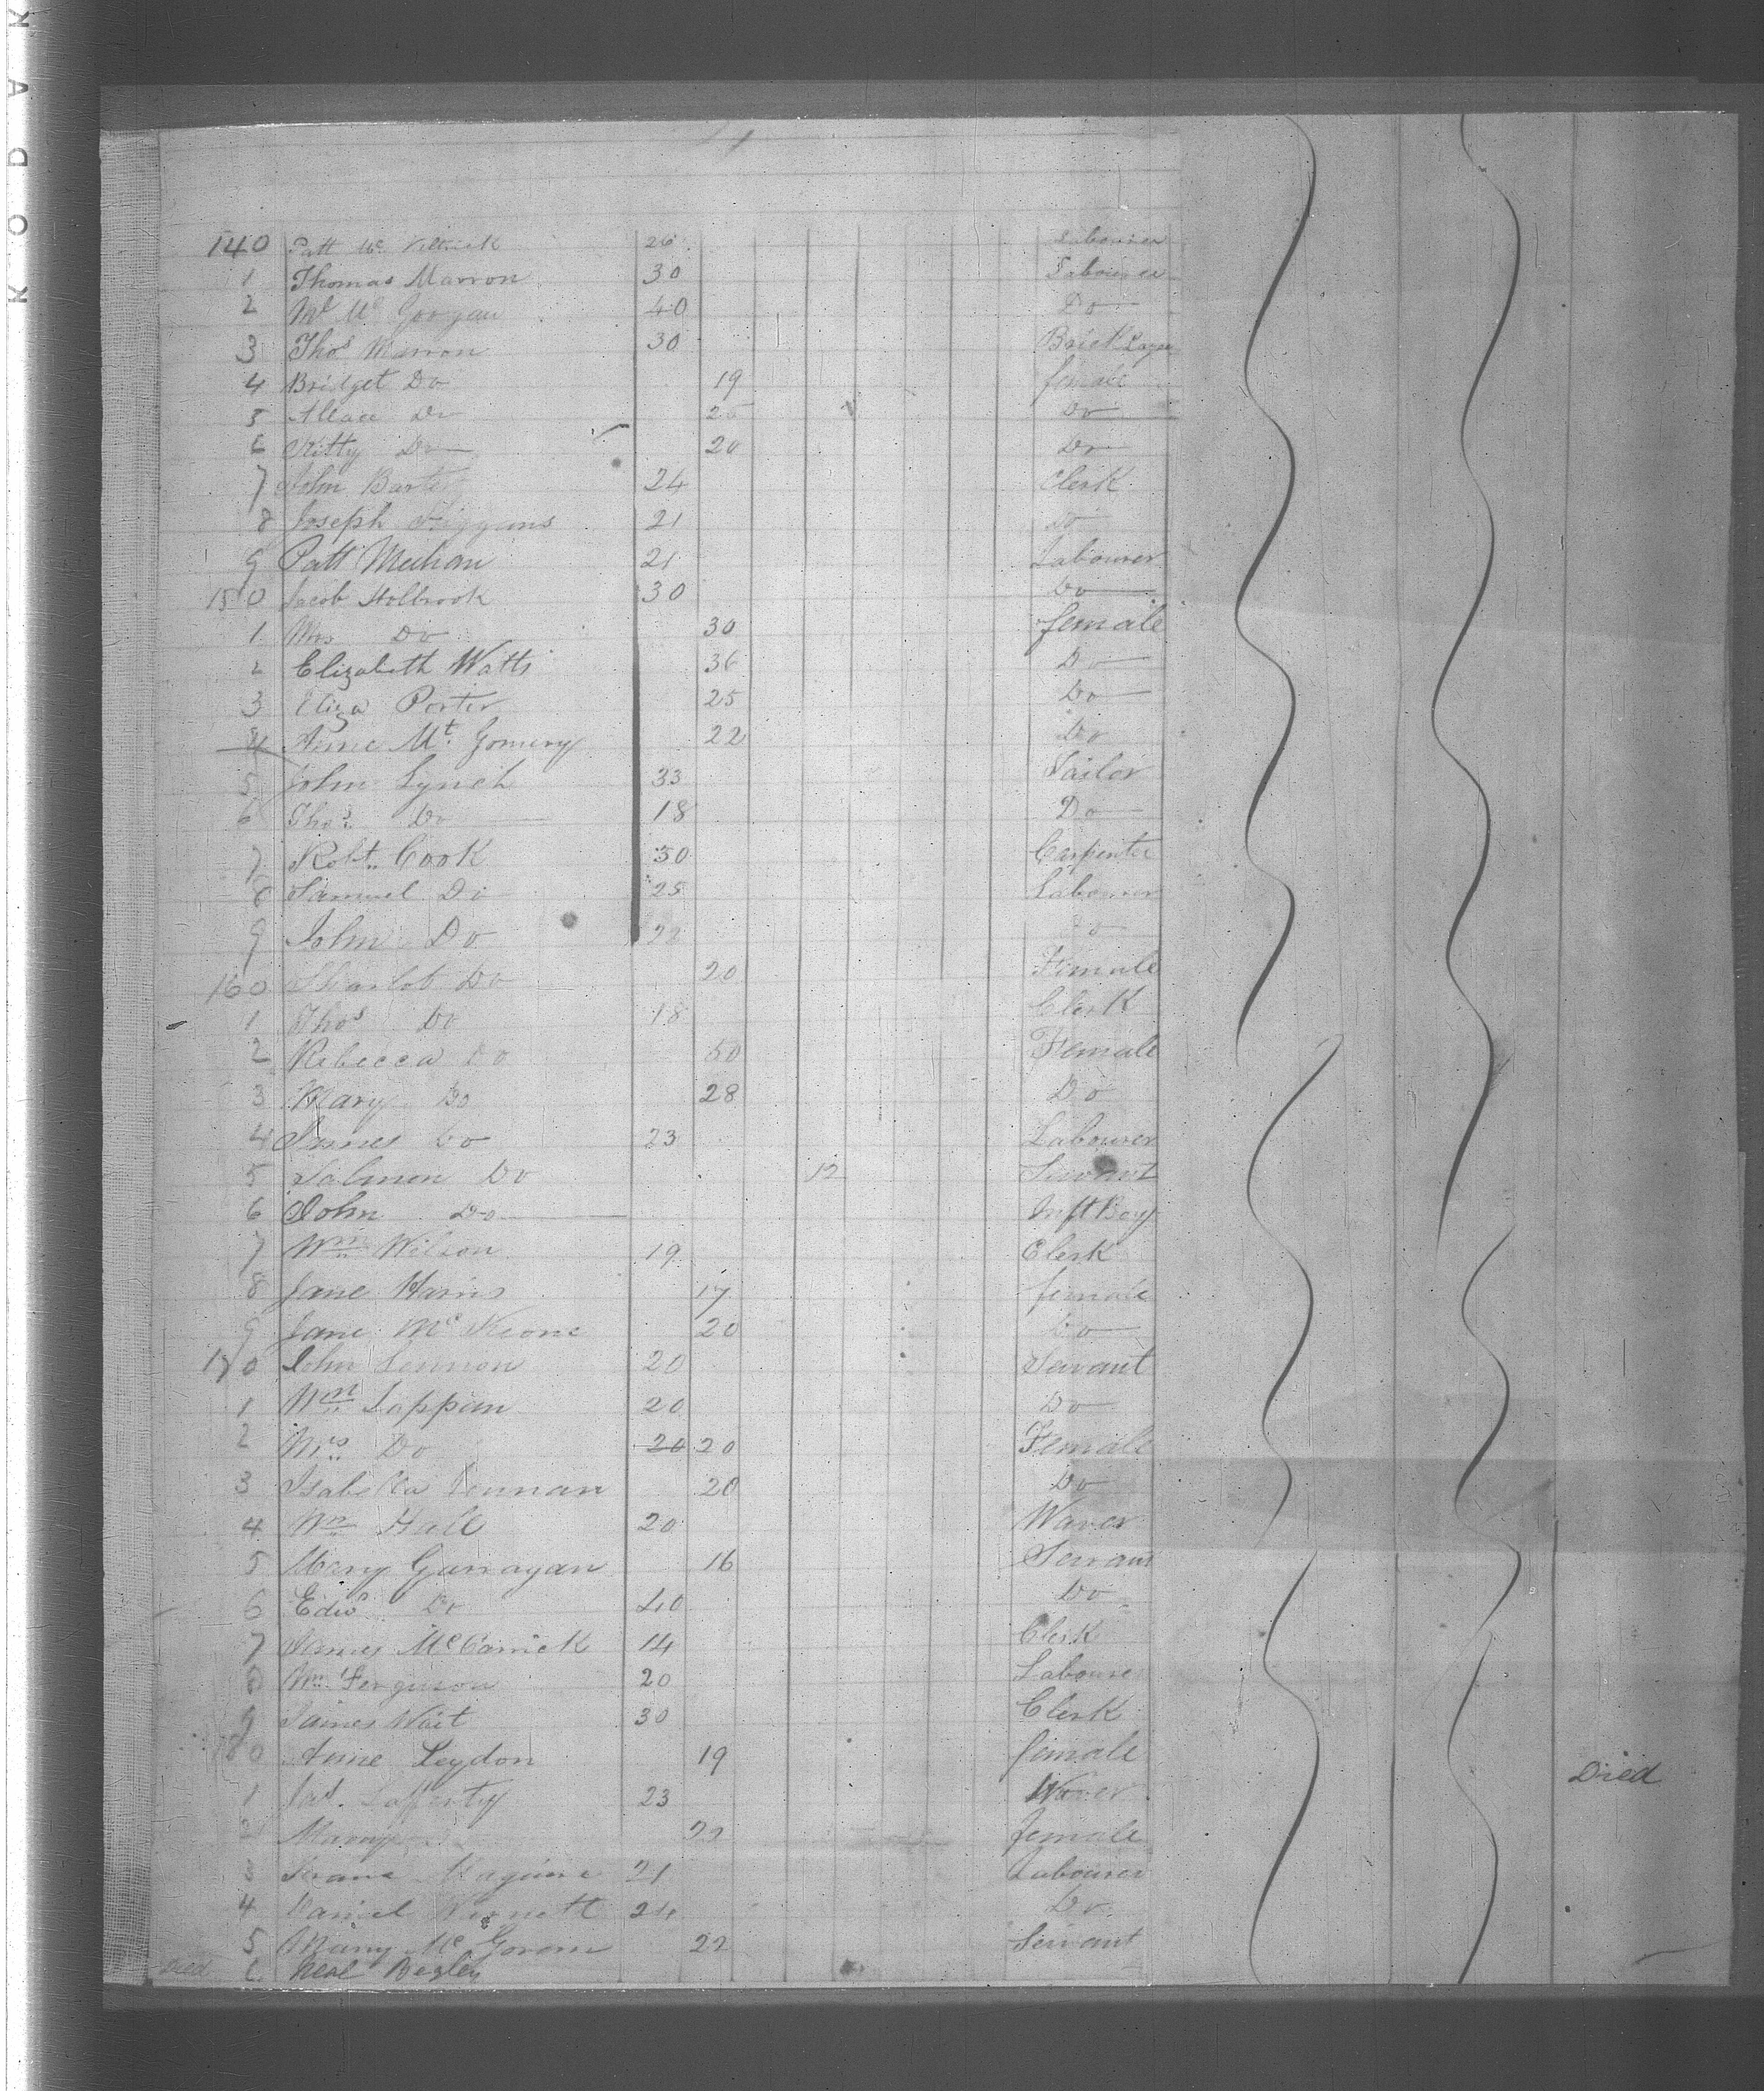 KODAK
140 Patt Mc 26 Labourer
1 Thomas Marron 30 Labourer
2 Mc Gorgan 40 Do
3 Thos Marron 30 Brick Layer
4 Bridget Do 19 female
5 Do Do
6 Kitty Do 20 Do
7 John 24 Clerk
8 Joseph 21 Do
9 Patt Meehan 21 Labourer
150 Jacob Holbrook 30 Do
1 Mrs Do 30 female
2 Elizabeth Watts 36 Do
3 Eliza Porter 25 Do
4 Anne Mt. Gomery 22 Do
5 John Lynch 33 Tailor
6 Thos. Do 18 Do
7 Robt. Cook 50 Carpenter
8 Samuel Do 25 Labourer
9 John Do 22 Do
160 Sharlot Do 20 Female
1 Thos Do 18 Clerk
2 Rebecca Do 50 Female
3 Mary Do 28 Do
4 James Do 23 Labourer
5 Salmon Do 12 Servant
6 John Do Inft Boy
7 Wm Wilson 19 Clerk
8 Jane Harris 17 female
9 Jane Mc Keone 20 Do
170 John Lennon 20 Servant
1 Wm Lappan 20 Do
2 Mrs Do 20 20 Female
3 Isabella 20 Do
4 Wm Hall 20 Waver
5 Mary Garragan 16 Servant
6 Edwd Do 40 Do
7 James McCarrick 14 Clerk
8 Wm Ferguson 20 Labourer
9 James Wait 30 Clerk
180 Anne Leydon 19 female Died
1 Jas. Lafferty 23 Waver
2 Mary 22 female
3 Maguire 21 Labourer
4 Daniel 24 Do
5 Mary Mc Govern 22 Servant
Died 6 Neal Begley